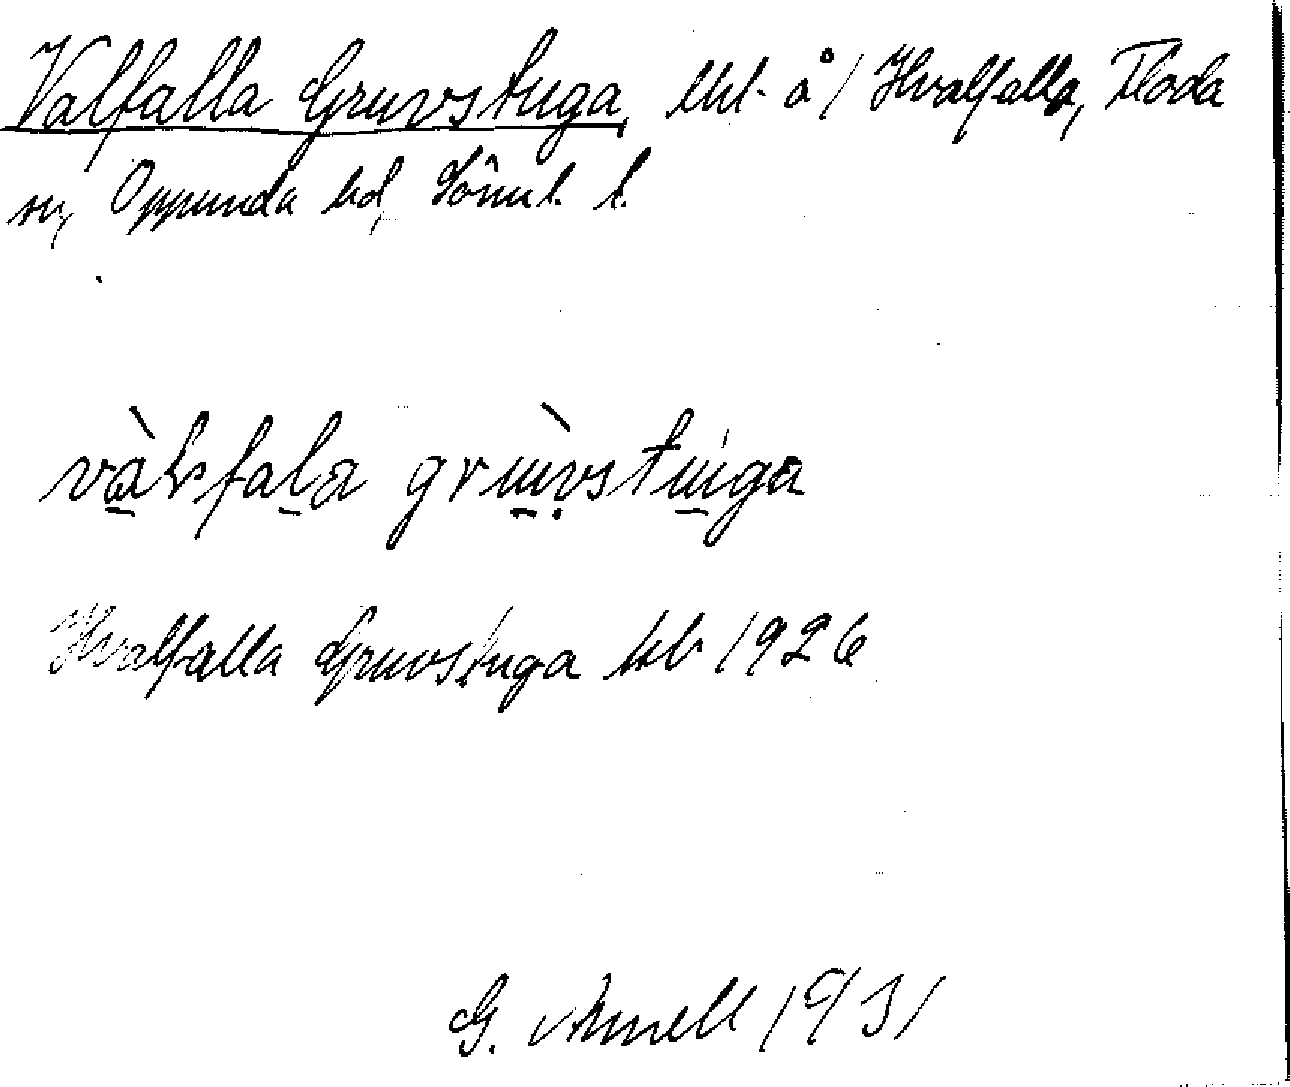 Valfalla Gruvstuga, lht. å / Hvalfalla, Floda
sn, Oppunda hd, Söml. l.
vàlsfala grùvstúga
Hvalfalla Gruvstuga kb 1926
G. Arnell 1931